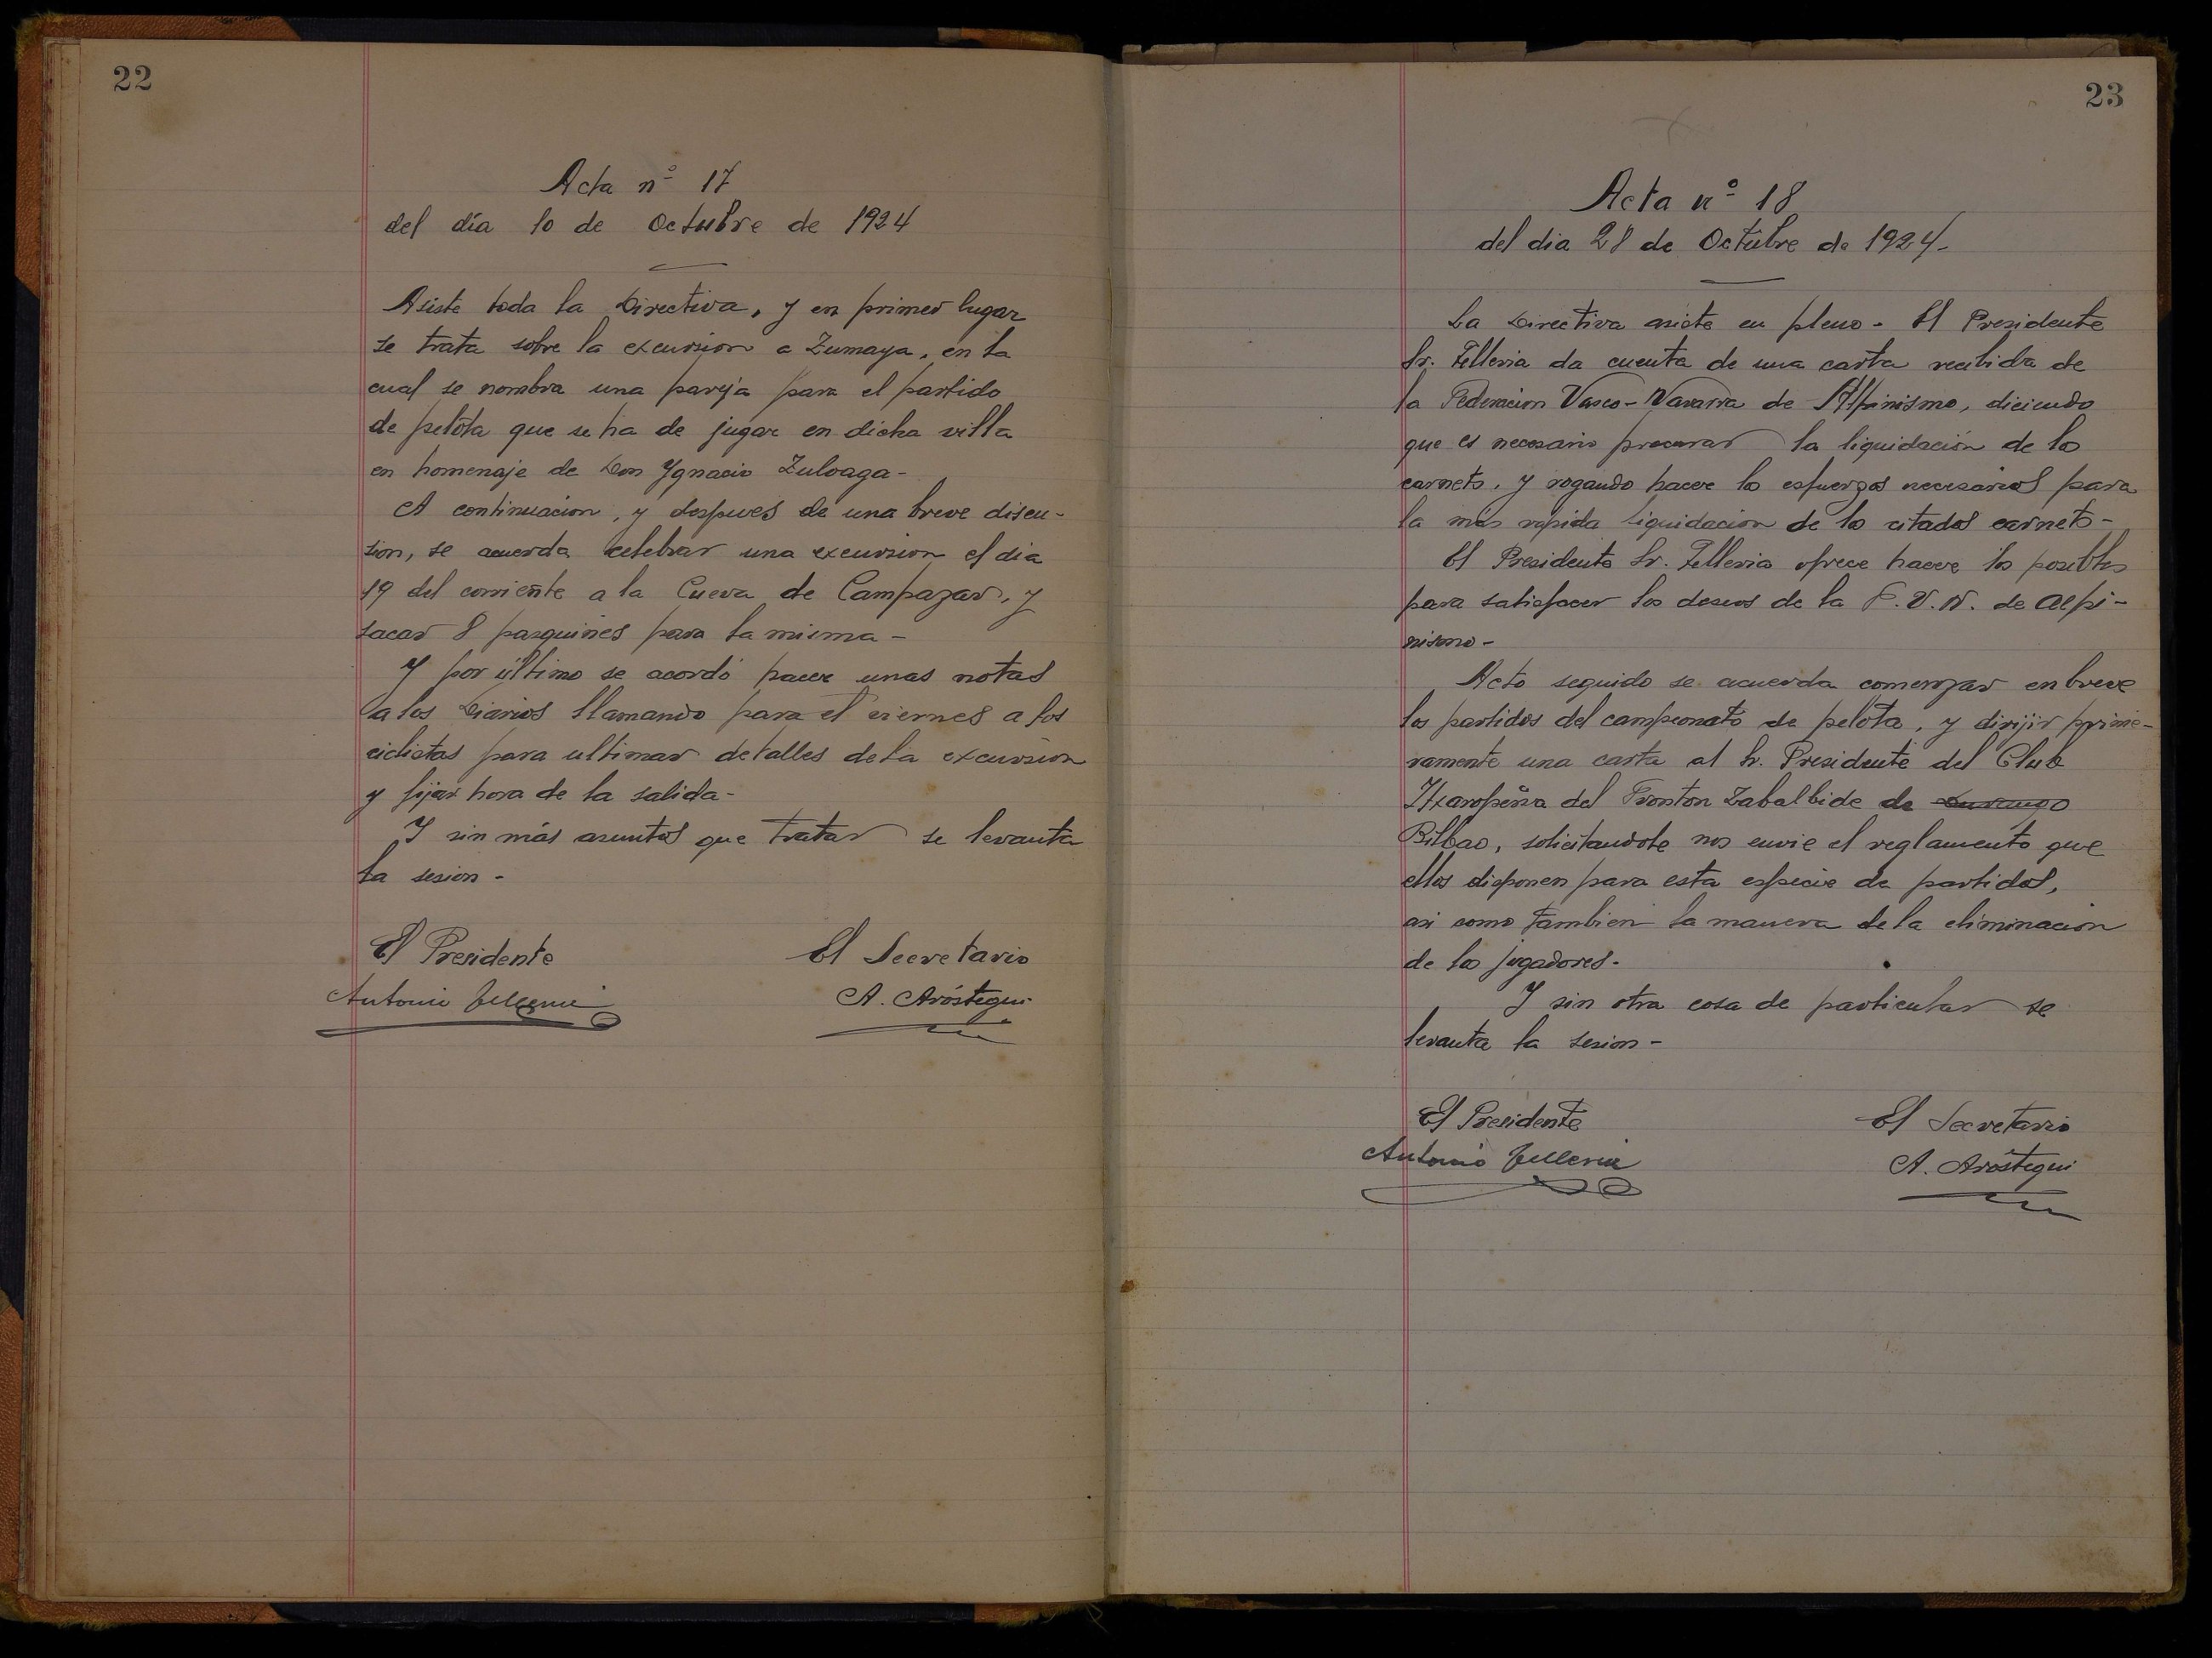 22
Acta nº 17
del día 10 de Octubre de 1924
Asiste toda la Directiva, y en primer lugar
se trata sobre la excursion a Zumaya, en la
cual se nombra una pareja para el partido
de pelota que se ha de jugar en dicha villa
en homenaje de Don Ygnacio Zuloaga-
A continuacion, y despues de una breve discu-
sion, se acuerda celebrar una excursion el dia
19 del corriente a la Cueva de Campazar, y
sacar 8 pasquines para la misma-
Y por último se acordó hacer unas notas
a los Diarios llamando para el viernes a los
ciclistas para ultimar detalles de la excursion
y fijar hora de la salida-
Y sin más asuntos que tratar se levanta
la sesion-
El Presidente El Secretario
Antonio Telleria A. Aróstegui
23
Acta nº 18
del dia 28 de Octubre de 1924-
La Directiva asiste en pleno- El Presidente
Sr. Telleria da cuenta de una carta recibida de
la Federacion Vasco-Navarra de Alpinismo, diciendo
que es necesario procurar la liquidación de los
carnets, y rogando hacer los esfuerzos necesarios para
la más rapida liquidacion de los citados carnets-
El Presidente Sr. Telleria ofrece hacer los posibles
para satisfacer los deseos de la F.V.N. de Alpi-
nismo-
Acto seguido se acuerda comenzar en breve
los partidos del campeonato de pelota, y dirijir prime-
ramente una carta al Sr. Presidente del Club
Itxaropena del Fronton Zabalbide de Durango
Bilbao, solicitandole nos envie el reglamento que
ellos disponen para esta especie de partidos,
asi como tambien la manera de la eliminacion
de los jugadores.
Y sin otra cosa de particular se
levanta la sesion-
El Presidente El Secretario
Antonio Telleria A. Aróstegui